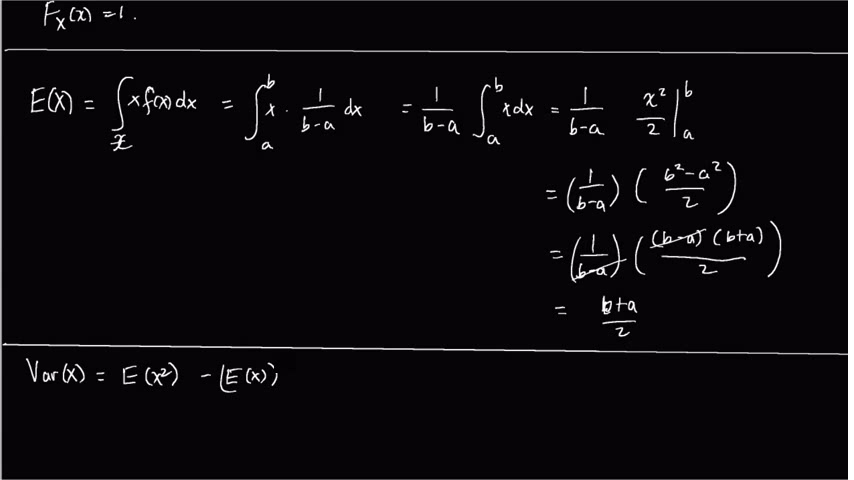 F_X(x) = 1.
E(X) = ∫_𝒳 x f(x) dx = ∫_a^b x · 1/(b-a) dx = 1/(b-a) ∫_a^b x dx = 1/(b-a) x²/2 |_a^b
= (1/(b-a)) ((b²-a²)/2)
= (1/(b-a)) ((b-a)(b+a)/2)
= (b+a)/2
Var(X) = E(X²) - (E(X))